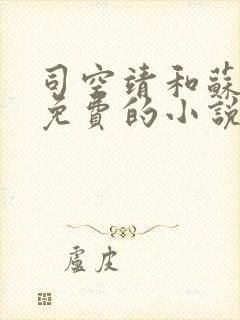 司空靖和蘇
免費的小說
盧皮